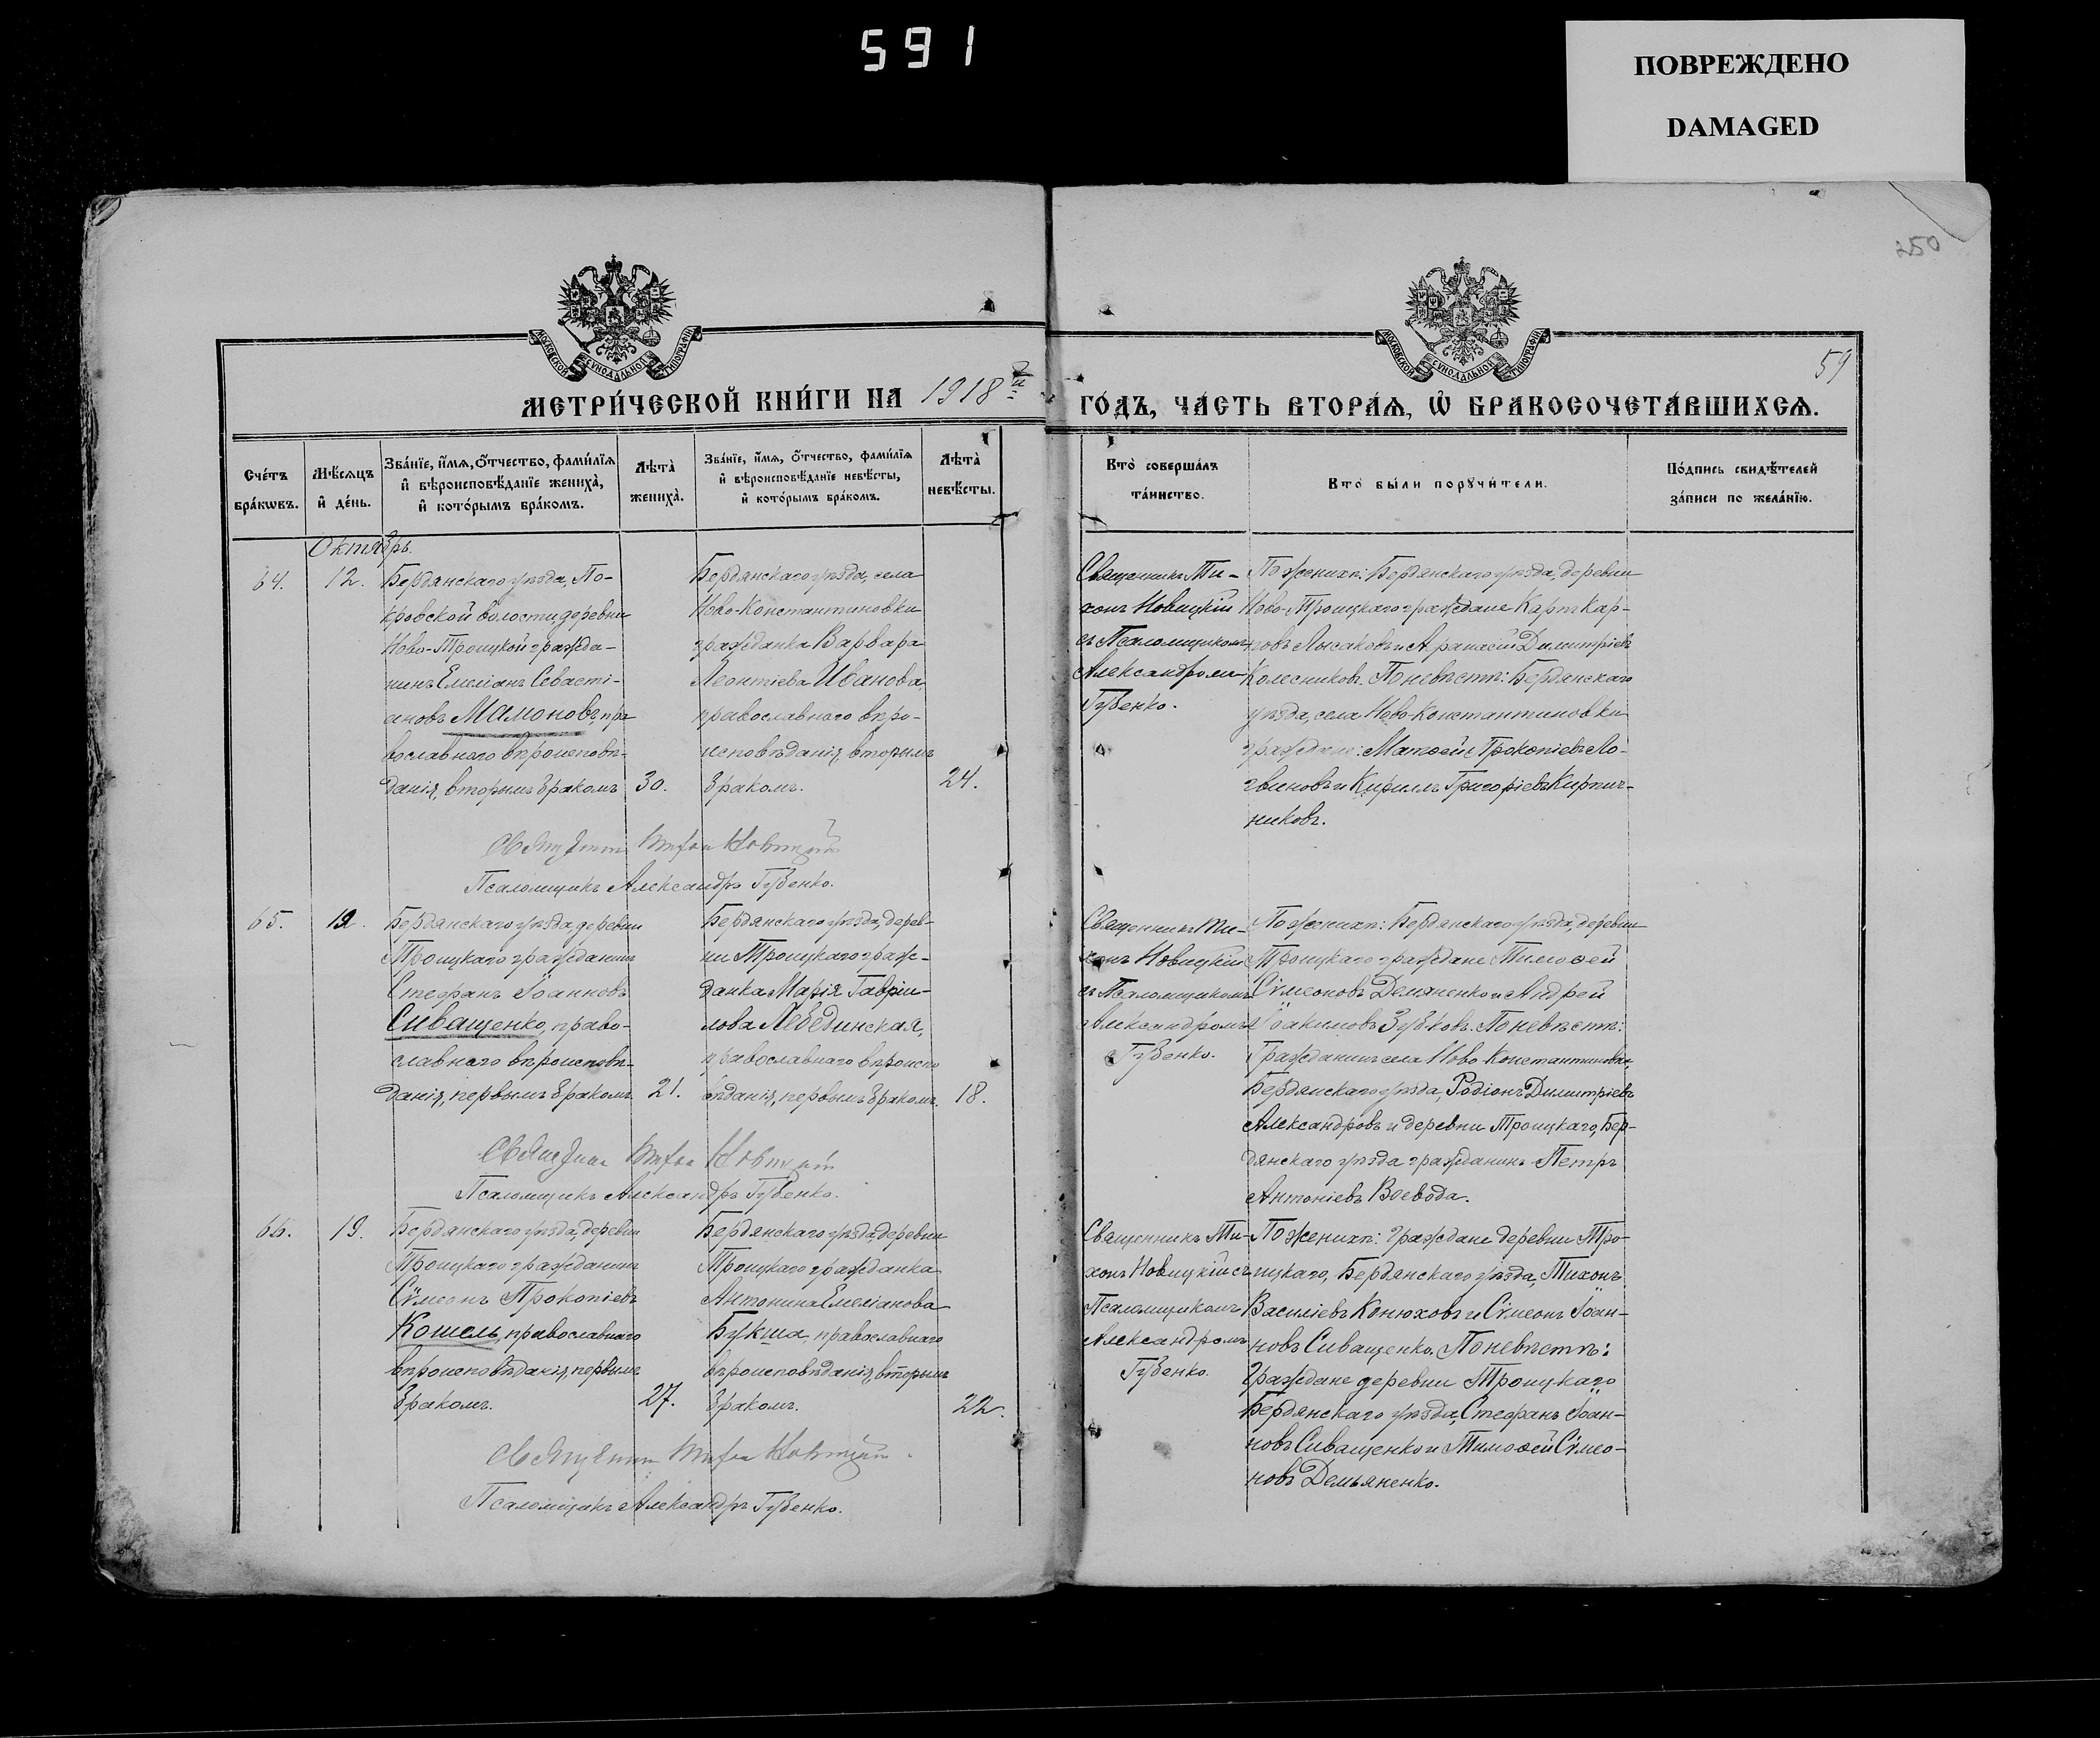 591
ПОВРЕЖДЕНО
DAMAGED
250
59
МОСКОВСКОЙ СѴНОДАЛЬНОЙ ТИПОГРАФІИ
МОСКОВСКОЙ СѴНОДАЛЬНОЙ ТИПОГРАФІИ
МЕТРИ́ЧЕСКОЙ КНИ́ГИ НА 1918й ГО́ДЪ, ЧА́СТЬ ВТОРА́Ѧ, Ѡ БРАКОСОЧЕТА́ВШИХСѦ.
Сче́тъ
бра́кωвъ.
Мѣ́сѧцъ
и де́нь.
Зва́нїе, и́мѧ, ѻ́тчество, фами́лїѧ
и вѣроисповѣ́данїе жениха̀,
и кото́рымъ бра́комъ.
Лѣта̀
жениха̀.
Зва́нїе, и́мѧ, ѻ́тчество, фами́лїѧ
и вѣроисповѣ́данїе невѣ́сты,
и кото́рымъ бра́комъ.
Лѣта̀
невѣ́сты.
Кто̀ соверша́лъ
та́инство.
Кто̀ бы́ли порꙋчи́тели.
По́дпись свидѣ́телей
за́писи по жела́нїю.
Октябрь.
64.
12.
Бердянскаго уѣзда, По-
кровской волости деревни
Ново-Троицкой гражда-
нинъ Емеліанъ Севасті-
ановъ Мамоновъ, пра
вославнаго вѣроисповѣ-
данія, вторымъ бракомъ
30.
Бердянскаго уѣзда, села
Ново-Константиновки
гражданка Варвара
Леонтіева Иванова,
православнаго вѣро-
исповѣданія, вторымъ
бракомъ.
24.
Священникъ Ти-
хонъ Новицкій
съ Псаломщикомъ
Александромъ
Губенко.
По женихѣ: Бердянскаго уѣзда, деревни
Ново-Троицкаго граждане Карпъ Кар-
повъ Лысаковъ и Аѳанасій Димитріевъ
Колесниковъ. По невѣстѣ: Бердянскаго
уѣзда, села Ново-Константиновки
граждане: Матѳей Прокопіевъ Ло-
гвиновъ и Кириллъ Григоріевъ Кирпич-
никовъ.
Священникъ Тихон Новицкій
Псаломщикъ Александръ Губенко.
65.
19.
Бердянскаго уѣзда, деревни
Троицкаго гражданинъ
Стефанъ Іоанновъ
Сиващенко, право-
славнаго вѣроисповѣ-
данія, первымъ бракомъ.
21.
Бердянскаго уѣзда, дерев-
ни Троицкаго граж-
данка Марія Гавріи-
лова Лебединская,
православнаго вѣроиспо
вѣданія, первымъ бракомъ.
18.
Священникъ Ти-
хонъ Новицкій
съ Псаломщикомъ
Александромъ
Губенко.
По женихѣ: Бердянскаго уѣзда, деревни
Троицкаго граждане Тимоѳей
Сѵмеоновъ Демяненко и Андрей
Іоакимовъ Зубковъ. По невѣстѣ:
Гражданинъ села Ново-Константиновки,
Бердянскаго уѣзда, Родіонъ Димитріевъ
Александровъ и деревни Троицкаго, Бер-
дянскаго уѣзда гражданинъ Петръ
Антоніевъ Воевода.
Священникъ Тихон Новицкій
Псаломщикъ Александръ Губенко.
66.
19.
Бердянскаго уѣзда, деревни
Троицкаго гражданинъ
Сѵмеонъ Прокопіевъ
Кошель, православнаго
вѣроисповѣданія, первымъ
бракомъ.
27.
Бердянскаго уѣзда, деревни
Троицкаго гражданка
Антонина Емеліанова
Букша, православнаго
вѣроисповѣданія, вторымъ
бракомъ.
22.
Священникъ Ти-
хонъ Новицкій съ
Псаломщикомъ
Александромъ
Губенко.
По женихѣ: граждане деревни Тро-
ицкаго, Бердянскаго уѣзда, Тихонъ
Василіевъ Конюховъ и Сѵмеонъ Іоан-
новъ Сиващенко. По невѣстѣ:
Граждане деревни Троицкаго
Бердянскаго уѣзда, Стефанъ Іоан-
новъ Сиващенко и Тимоѳей Сѵмео-
новъ Демьяненко.
Священникъ Тихон Новицкій
Псаломщикъ Александръ Губенко.